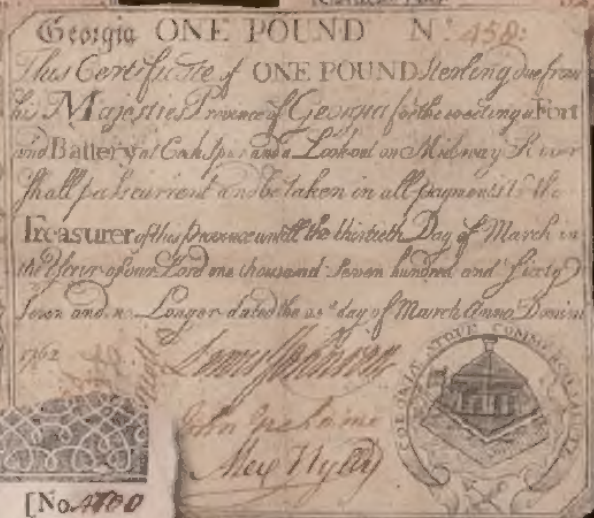 Georgia ONE POUND No 458:
This Certificate of ONE POUND Sterling due from
his Majesties Province of Georgia for the erecting a Fort
and Battery at Cockspur and a Lookout on Midway River
Shall pass current and be taken in all payments to the
Treasurer of this Province untill the thirtieth Day of March in
the Year of our Lord one thousand Seven hundred and Sixty
Seven and no Longer dated the day of March Anno Domini
1762
Lewis Johnson
John Grahame
Alex Wylly
COLONIA ATQUE COMMERCII
[No 4700